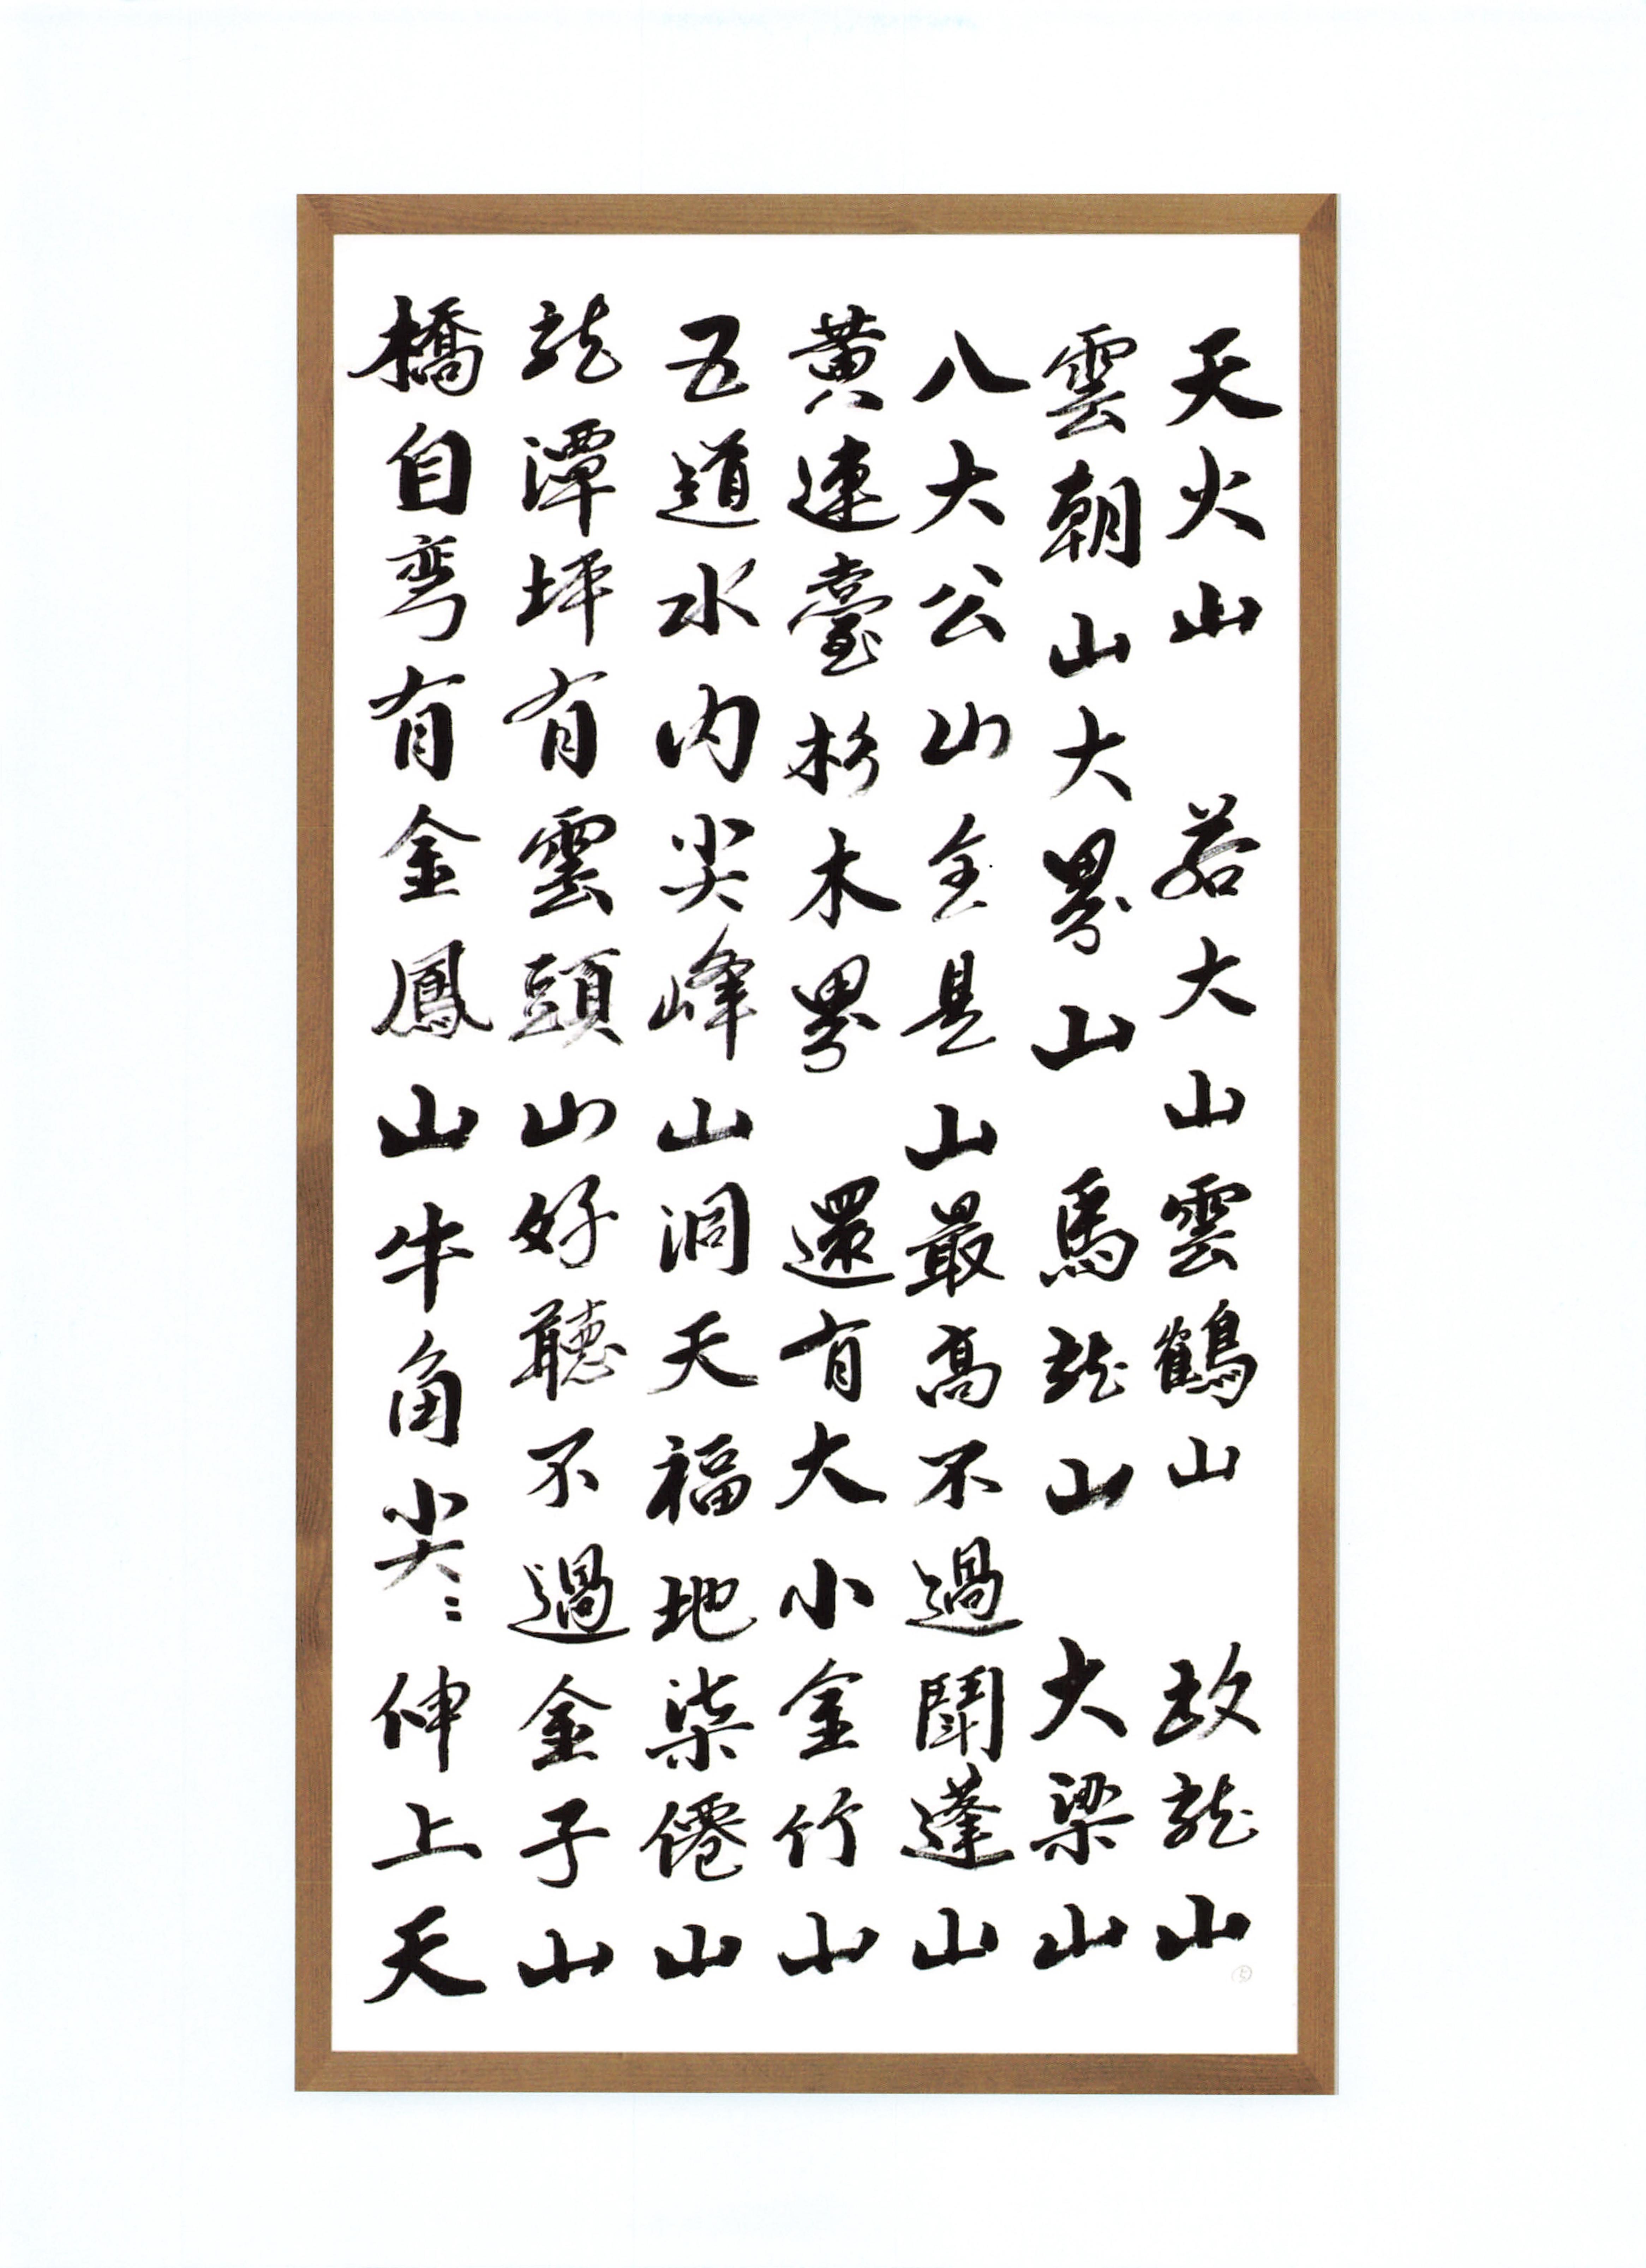 天火山 若大山雲鶴山 故龍山
雲朝山大界山 馬龍山 大梁山
八大公山全是山最高不過鬪蓬山
黃連臺杉木界 還有大小金竹山
五道水內尖峰山洞天福地柒僊山
龍潭坪有雲頭山好聽不過金子山
橋自彎有金鳳山牛角尖尖伸上天